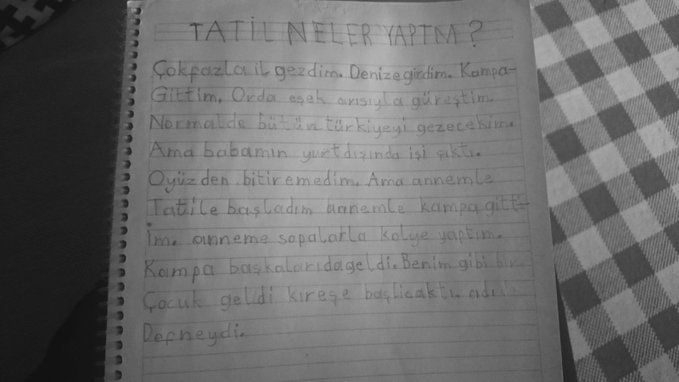 TATİL NELER YAPTM?
Çokfazla il gezdim. Denize girdim. Kampa-
Gittim. Orda eşek arısıyla güreştim.
Normalde bütün türkiyeyi gezecektim.
Ama babamın yurtdışında işi çıktı.
Oyüzden bitiremedim. Ama annemle
Tatile başladım annemle kampa gitt-
im. anneme sopalarla kolye yaptım.
Kampa başkalarıdageldi. Benim gibi bir
Çocuk geldi kireşe başlicaktı. adı
Defneydi.